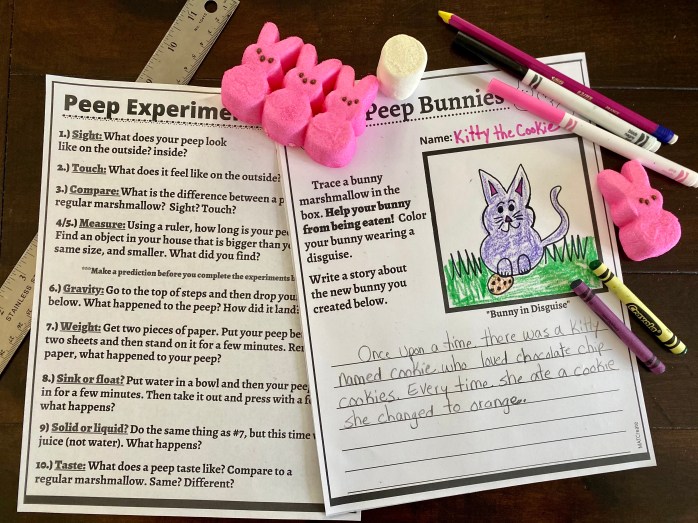 Peep Experimen
1.) Sight: What does your peep look
like on the outside? inside?
2.) Touch: What does it feel like on the outside?
3.) Compare: What is the difference between a p
regular marshmallow? Sight? Touch?
4/5.) Measure: Using a ruler, how long is your pee
Find an object in your house that is bigger than yo
same size, and smaller. What did you find?
***Make a prediction before you complete the experiments b
6.) Gravity: Go to the top of steps and then drop you
below. What happened to the peep? How did it land?
7.) Weight: Get two pieces of paper. Put your peep be
two sheets and then stand on it for a few minutes. Re
paper, what happened to your peep?
8.) Sink or float? Put water in a bowl and then your pee
in for a few minutes. Then take it out and press with a f
what happens?
9) Solid or liquid? Do the same thing as #7, but this time w
juice (not water). What happens?
10.) Taste: What does a peep taste like? Compare to a
regular marshmallow. Same? Different?
Peep Bunnies
Name: Kitty the Cookie
Trace a bunny
marshmallow in the
box. Help your bunny
from being eaten! Color
your bunny wearing a
disguise.
Write a story about
the new bunny you
created below.
"Bunny in Disguise"
Once upon a time there was a kitty
named cookie who loved chocolate chip
cookies. Every time she ate a cookie
she changed to orange.
11
10
9
STAINLESS
3
Crayola